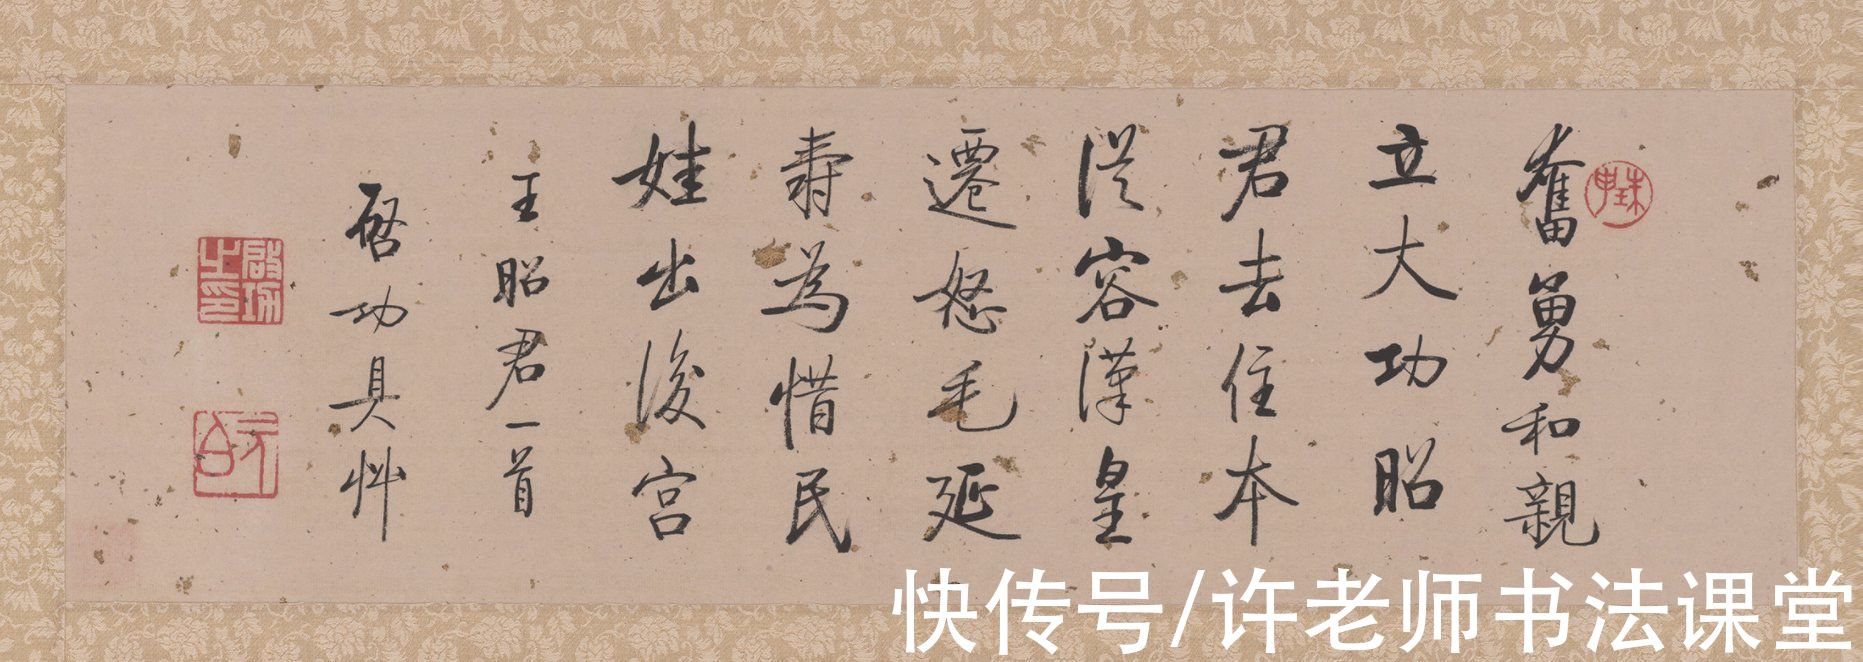 奮勇和親
立大功昭
君去住本
從容漢皇
遷怒毛延
壽為惜民
娃出後宮
王昭君一首
啓功具艸
啟功之印
快传号/许老师书法课堂